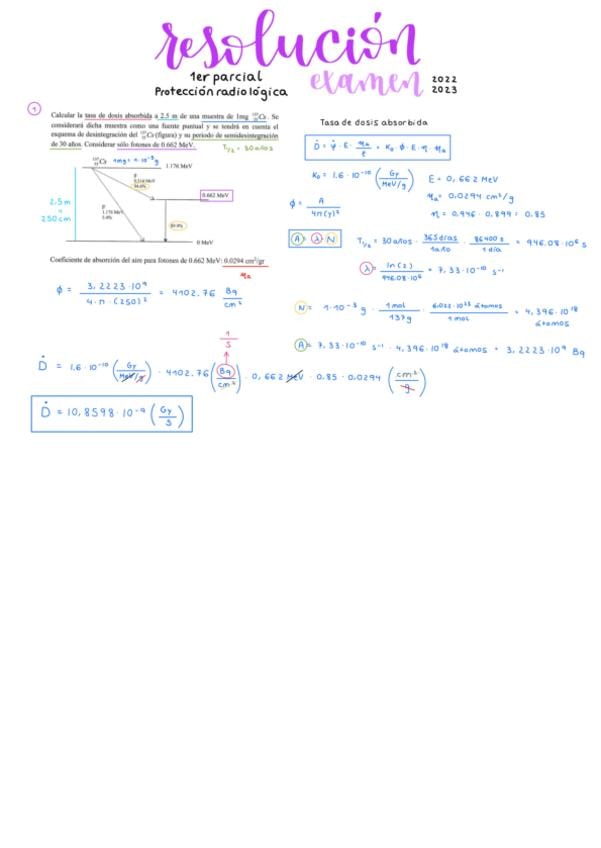 resolución
1er parcial
Protección radiológica
examen
2022
2023
1
Calcular la tasa de dosis absorbida a 2.5 m de una muestra de 1mg ¹³⁷₅₅Cs. Se
considerará dicha muestra como una fuente puntual y se tendrá en cuenta el
esquema de desintegración del ¹³⁷₅₅Cs (figura) y su periodo de semidesintegración
de 30 años. Considerar sólo fotones de 0.662 MeV.
T₁/₂ = 30 años
¹³⁷₅₅Cs 1mg = 1·10⁻³g
1.176 MeV
β
0.514 MeV
94.6%
0.662 MeV
2.5 m
=
250 cm
β
1.176 MeV
5.4%
89.9%
0 MeV
Coeficiente de absorción del aire para fotones de 0.662 MeV: 0.0294 cm²/gr
μa
ϕ = 3,2223·10⁹ / 4·π·(250)² = 4102,76 Bq/cm²
Tasa de dosis absorbida
Ḋ = ψ̇ · E · μa/ρ = K₀ · ϕ · E · η · μa
K₀ = 1.6·10⁻¹⁰ (Gy / MeV/g)
E = 0,662 MeV
μa = 0,0294 cm²/g
ϕ = A / 4π(r)²
η = 0.946 · 0.899 = 0.85
A = λ N
T₁/₂ = 30 años · 365 días / 1 año · 86400 s / 1 día = 946.08·10⁶ s
λ = ln(2) / 946.08·10⁶ = 7,33·10⁻¹⁰ s⁻¹
N = 1·10⁻³ g · 1 mol / 137g · 6.022·10²³ átomos / 1 mol = 4,396·10¹⁸ átomos
A = 7,33·10⁻¹⁰ s⁻¹ · 4,396·10¹⁸ átomos = 3,2223·10⁹ Bq
1/s
Ḋ = 1.6·10⁻¹⁰ (Gy / MeV/g) · 4102.76 (Bq/cm²) · 0,662 MeV · 0.85 · 0.0294 (cm²/g)
Ḋ = 10,8598·10⁻⁹ (Gy/s)